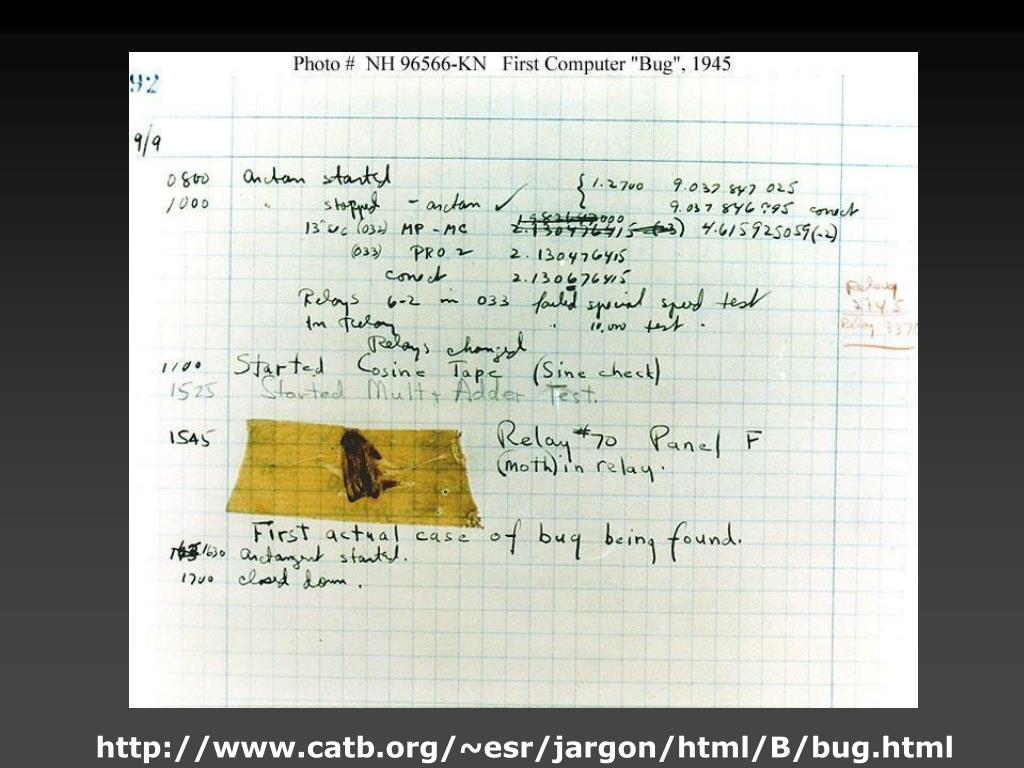 Photo # NH 96566-KN First Computer "Bug", 1945
92
9/9
0800 Antan started
1000 " stopped - antan ✓ { 1.2700 9.037 847 025
9.037 846 995 conect
13" uc (032) MP - MC 2.130476415 (-3) 4.615925059(-2)
(033) PRO 2 2.130476415
conect 2.130676415
Relays 6-2 in 033 failed special speed test
In Relay " 10,000 test .
Relay
2145
Relay 3370
Relays changed
1100 Started Cosine Tape (Sine check)
1525 Started Mult + Adder Test.
1545 Relay #70 Panel F
(moth) in relay.
First actual case of bug being found.
1630 antangent started.
1700 closed down .
http://www.catb.org/~esr/jargon/html/B/bug.html